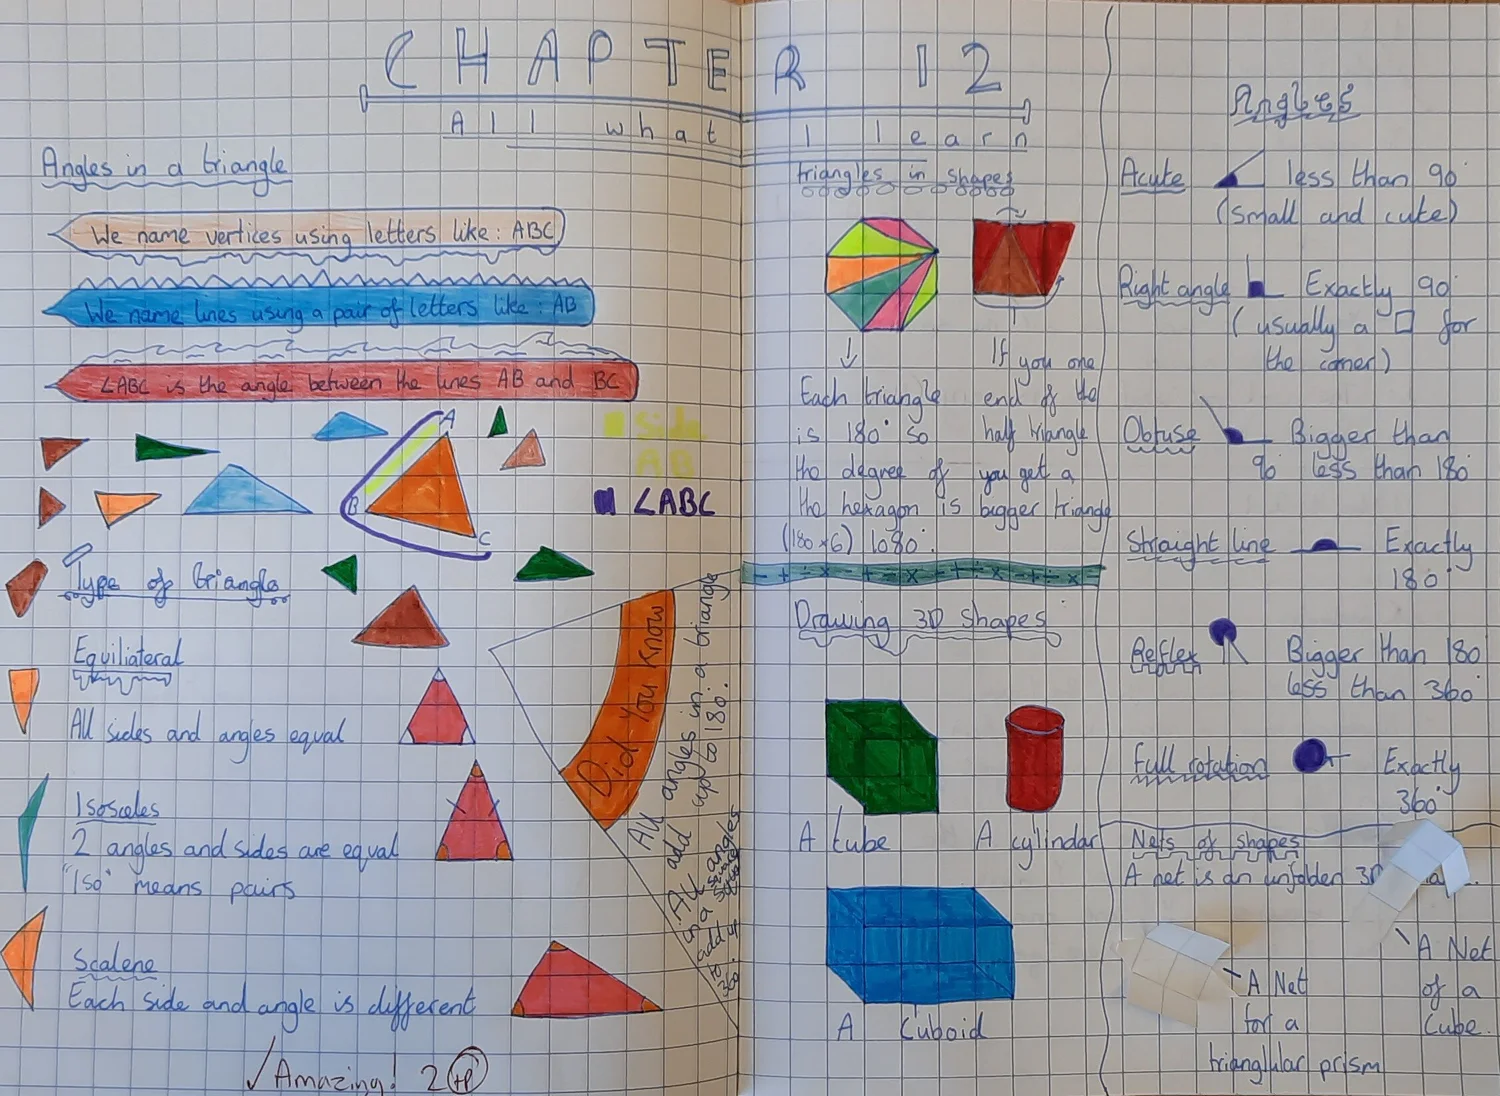 CHAPTER 12
All what I learn
Angles in a triangle
We name vertices using letters like: ABC
We name lines using a pair of letters like: AB
∠ABC is the angle between the lines AB and BC
A
B
C
Side
AB
∠ABC
Type of triangle
Equiliateral
All sides and angles equal
Isosceles
2 angles and sides are equal
"Iso" means pairs
Scalene
Each side and angle is different
✓Amazing! 2 +P
Did You Know
All angles in a triangle
add up to 180°.
All angles
in a square
add up
to 360°
triangles in shapes
Each triangle
is 180° so
the degree of
the hexagon is
(180×6) 1080°.
If you one
end of the
half triangle
you get a
bigger triangle
Drawing 3D Shapes
A cube
A cylindar
A Cuboid
Angles
Acute less than 90°
(small and cute)
Right angle Exactly 90°
(usually a □ for
the corner)
Obtuse Bigger than
90° less than 180°
Straight line Exactly
180°
Reflex Bigger than 180
less than 360°
Full rotation Exactly
360°
Nets of shapes
A net is an unfolden 3D
A Net
of a
Cube.
A Net
for a
trianglular prism